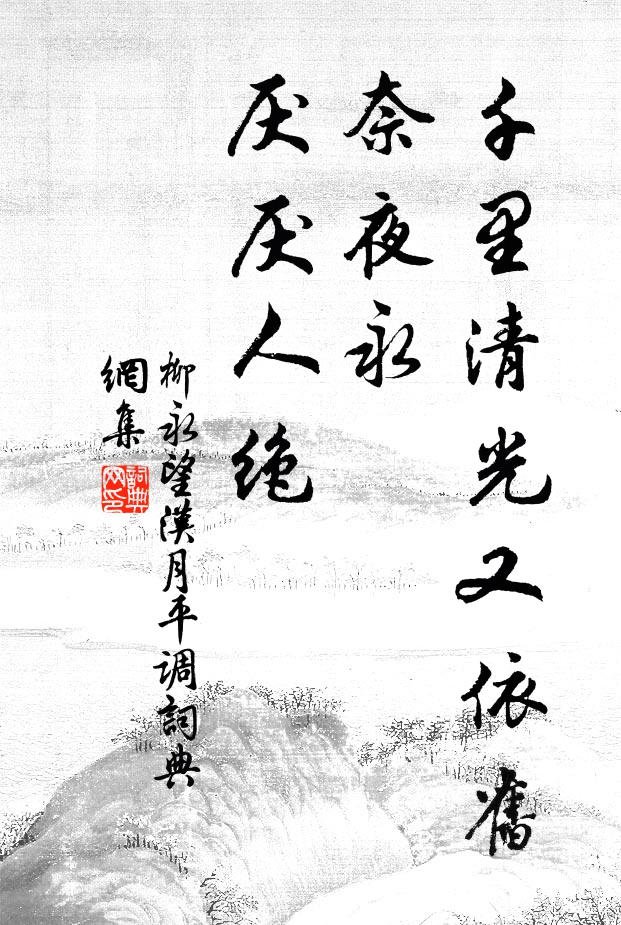 千里清光又依舊
奈夜永
厌厌人绝
柳永望漢月平调詞典
網集
詞典
网印